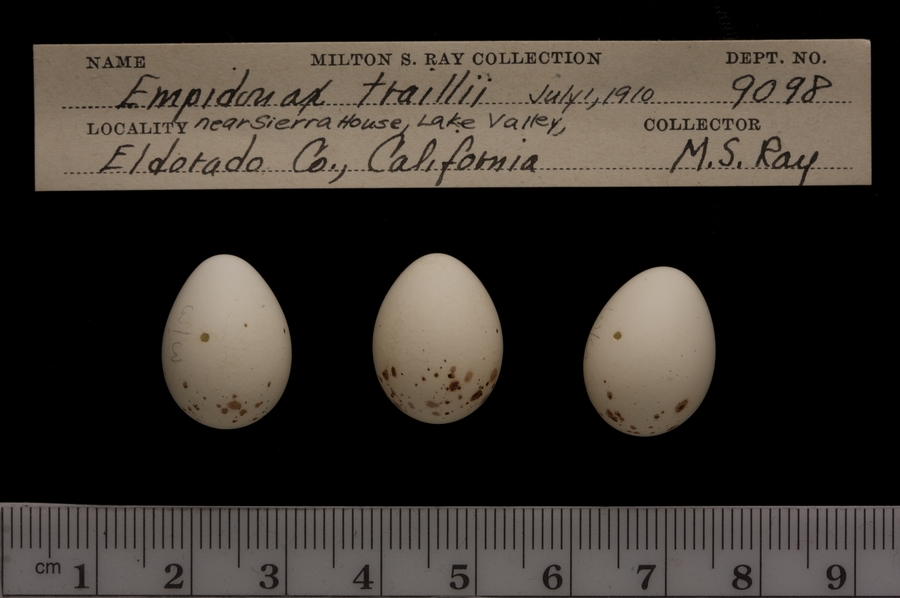 NAME MILTON S. RAY COLLECTION DEPT. NO.
Empidonax traillii July 1, 1910 9098
LOCALITY near Sierra House, Lake Valley, COLLECTOR
Eldorado Co., California M.S. Ray
cm 1 2 3 4 5 6 7 8 9